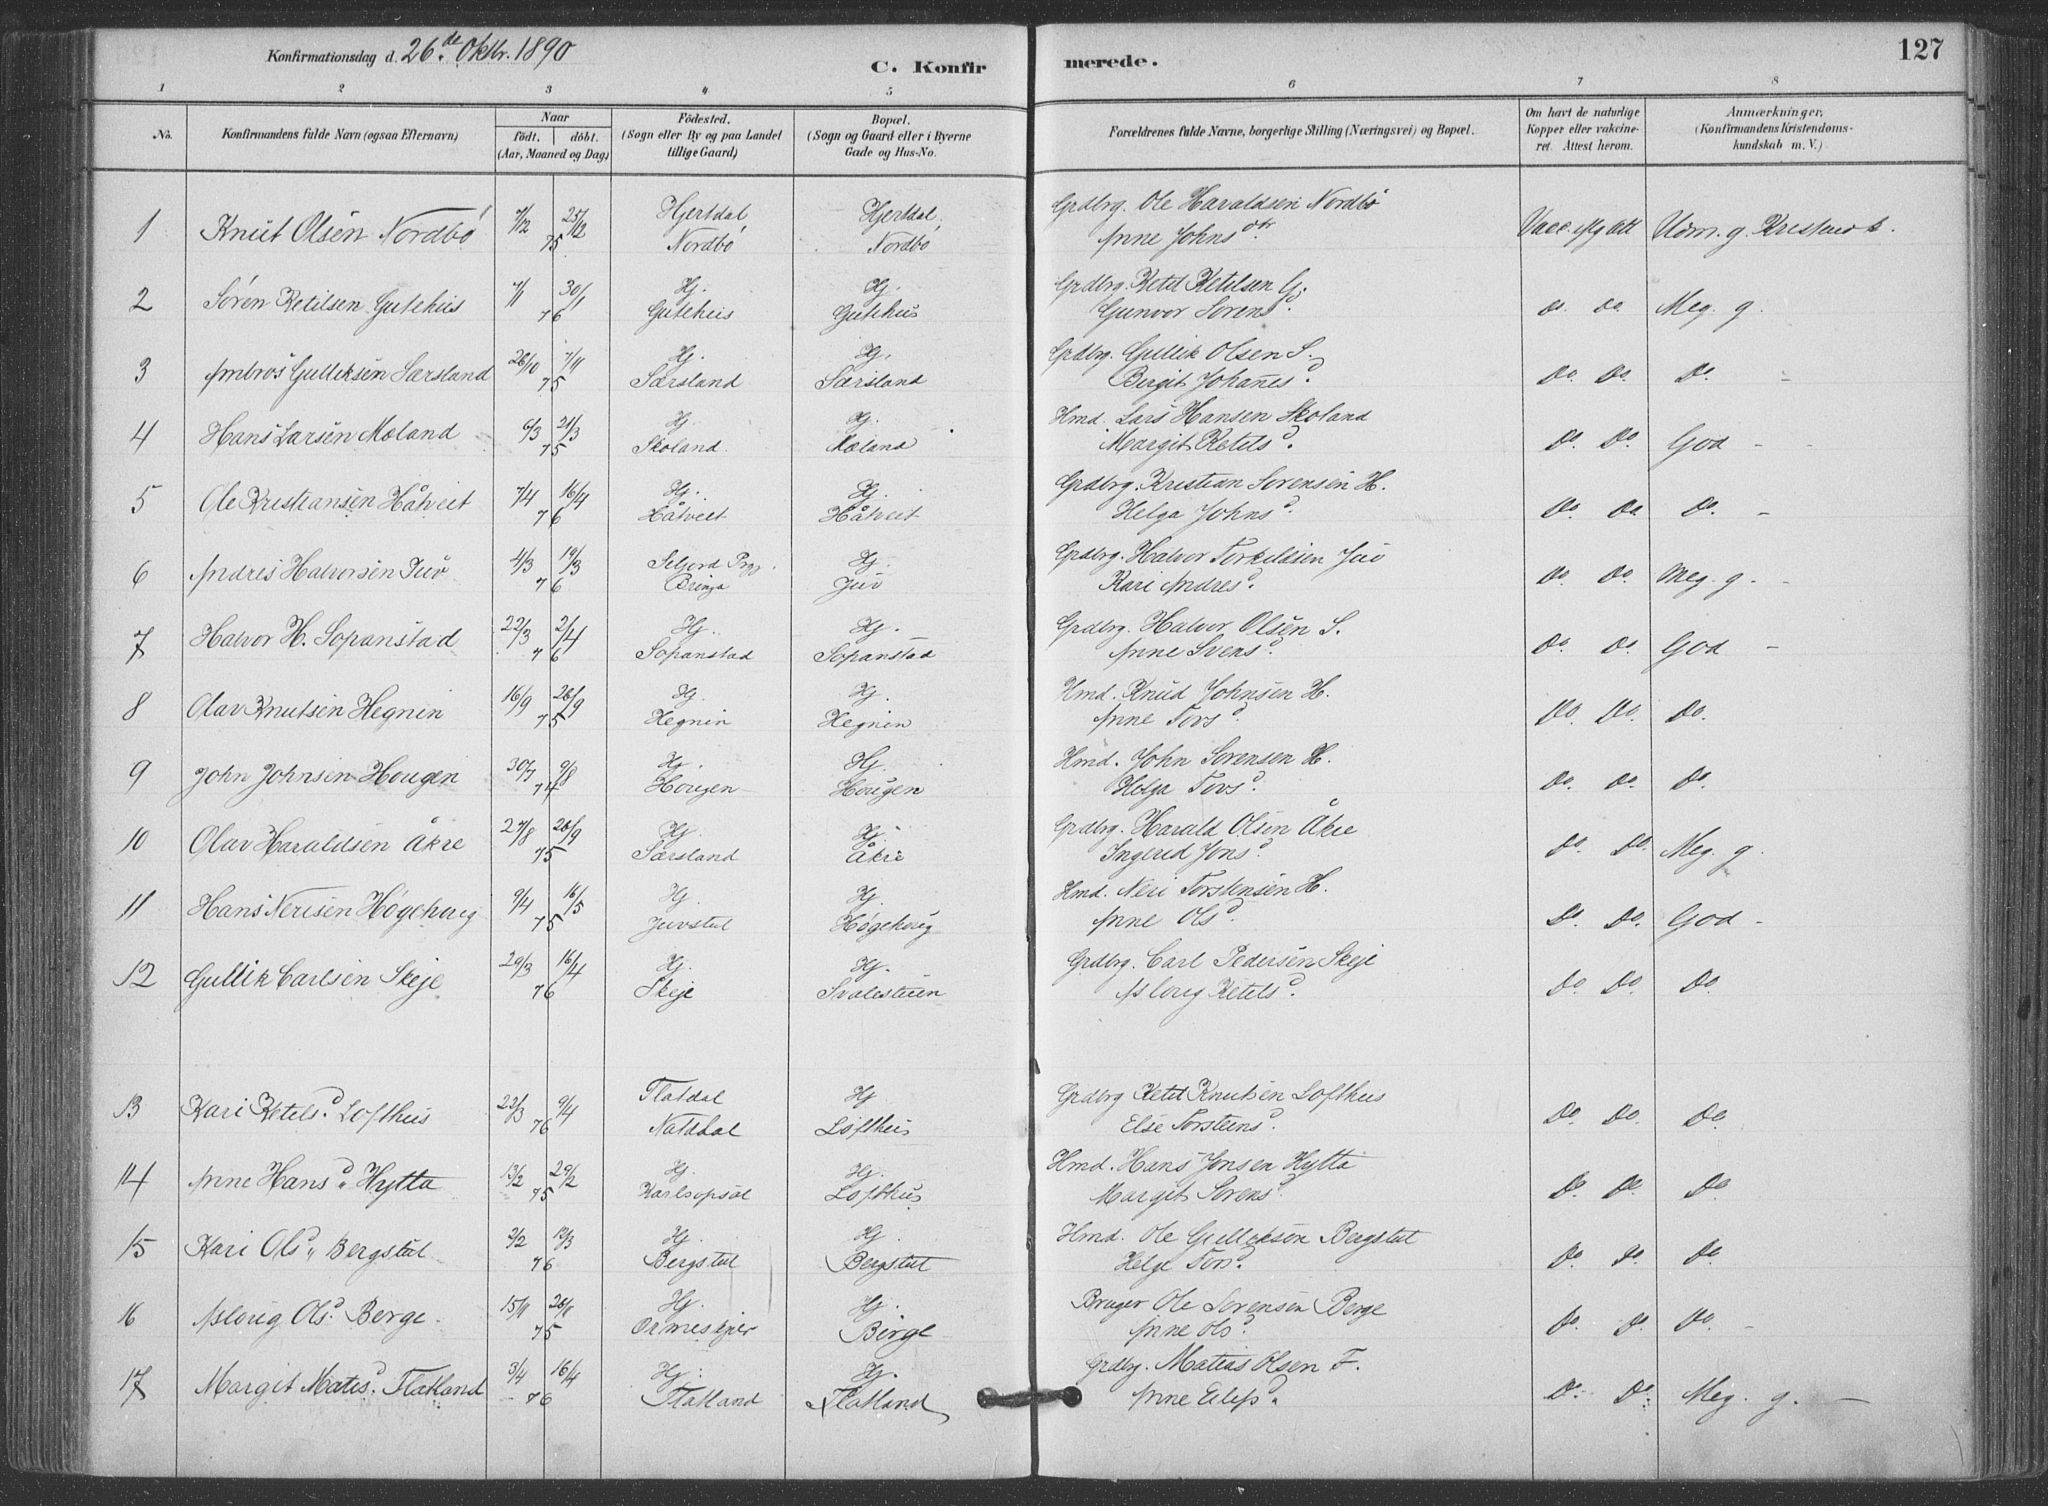 Konfirmationsdag d. 26de Oktbr. 1890
C. Konfirmerede.
127
1 2 3 4 5 6 7 8
No. Konfirmandens fulde Navn (ogsaa Efternavn) Naar födt. döbt. (Aar, Maaned og Dag) Födested. (Sogn eller By og paa Landet tillige Gaard) Bopæl. (Sogn og Gaard eller i Byerne Gade og Hus-No. Forældrenes fulde Navne, borgerlige Stilling (Næringsvei) og Bopæl. Om havt de naturlige Kopper eller vakcineret. Attest herom. Anmærkninger. (Konfirmandens Kristendomskundskab m. V.)
1 Knut Olsen Nordbö 7/12 25/12 75 Hjertdal Nordbö Hjertdal, Nordbö Grdbrg. Ole Haraldsen Nordbö
Anne Johnsdtr Vacc. Udm. g. Kristendk.
2 Sören Ketilsen Gutehus 7/1 30/1 76 Hj. Gutehus Hj. Gutehus Grdbrg. Ketil Ketilsen G.
Gunvor Sorensd. do. do. Meg. g.
3 Ambros Gulliksen Særsland 26/10 7/11 75 Hj. Særsland Hj. Særsland Grdbrg. Gullik Olsen S.
Birgit Johannesd. Do. Do. Do. -
4 Hans Larsen Mæland 6/3 21/3 75 Hj. Skoland Hj. Mæland Hmd. Lars Hansen Skoland
Margit Ketilsd. Do. Do. God - -
5 Ole Kristiansen Håtveit 7/4 16/4 76 Hj. Håtveit Hj. Håtveit Grdbrg. Kristian Sorensen H.
Helga Johnsd. Do. Do. Do. -
6 Andres Halvorsen Juv 4/3 19/3 76 Seljord Prgj. Bringa Hj. Juv Grdbrg. Halvor Torkildsen Juv
Kari Andresd. Do. Do. Meg. g. -
7 Halvor H. Sopanstad 22/3 2/4 76 Hj. Sopanstad Hj. Sopanstad Grdbrg. Halvor Olsen S.
Anne Svensd. Do. Do. God -
8 Olav Knutsen Hegnin 16/9 26/9 75 Hj. Hegnin Hj. Hegnin Hmd. Knud Johnsen H.
Anne Torsd. Do. Do. Do.
9 John Johnsen Hougen 30/7 9/8 74 Hj. Hougen Hj. Hougen Hmd. John Sorensen H.
Helga Torsd. Do. Do. Do.
10 Olav Haraldsen Åkre 27/8 26/9 75 Hj. Særsland Hj. Åkre Grdbrg. Harald Olsen Åkre
Ingerid Jonsd. Do. Do. Meg. g.
11 Hans Nerisen Högehoug 9/4 16/5 75 Hj. Juvstul Hj. Högehoug Hmd. Neri Torstensen H.
Anne Olsd. Do. Do. God -
12 Gullik Carlsen Skeje 29/3 16/4 76 Hj. Skeje Hj. Svalestuen Grdbrg. Carl Pedersen Skeje
Asloug Ketilsd. Do. Do. Do
13 Kari Ketilsd. Lofthus 22/3 9/4 76 Flatdal Natdal Hj Lofthus Grdbrg Ketil Knutsen Lofthus
Else Torsteinsd. Do. Do. Do.
14 Anne Hansd. Hytta 13/2 29/2 75 Hj. Hj. Lofthus Hmd. Hans Jonsen Hytta
Margit Sorensd. Do. Do. Do
15 Kari Olsd. Bergstul 2/2 13/3 76 Hj. Bergstul Hj. Bergstul Hmd. Ole Gulleksen Bergstul
Helge Torsd. Do. Do. Do.
16 Asloug Olsd. Berge. 15/11 28/11 75 Hj. Hj. Berge Bruger Ole Sorensen Berge
Anne Olsd. Do. Do. Do. -
17 Margit Matisd. Flatland 3/4 16/4 76 Hj. Flatland Hj. Flatland Grdbrg. Matias Olsen F.
Anne Eilifsd. Do. Do. Meg. g. -